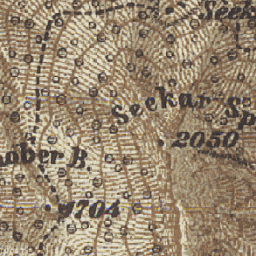 Seek
Seekar Sp
2050
ober B.
9704